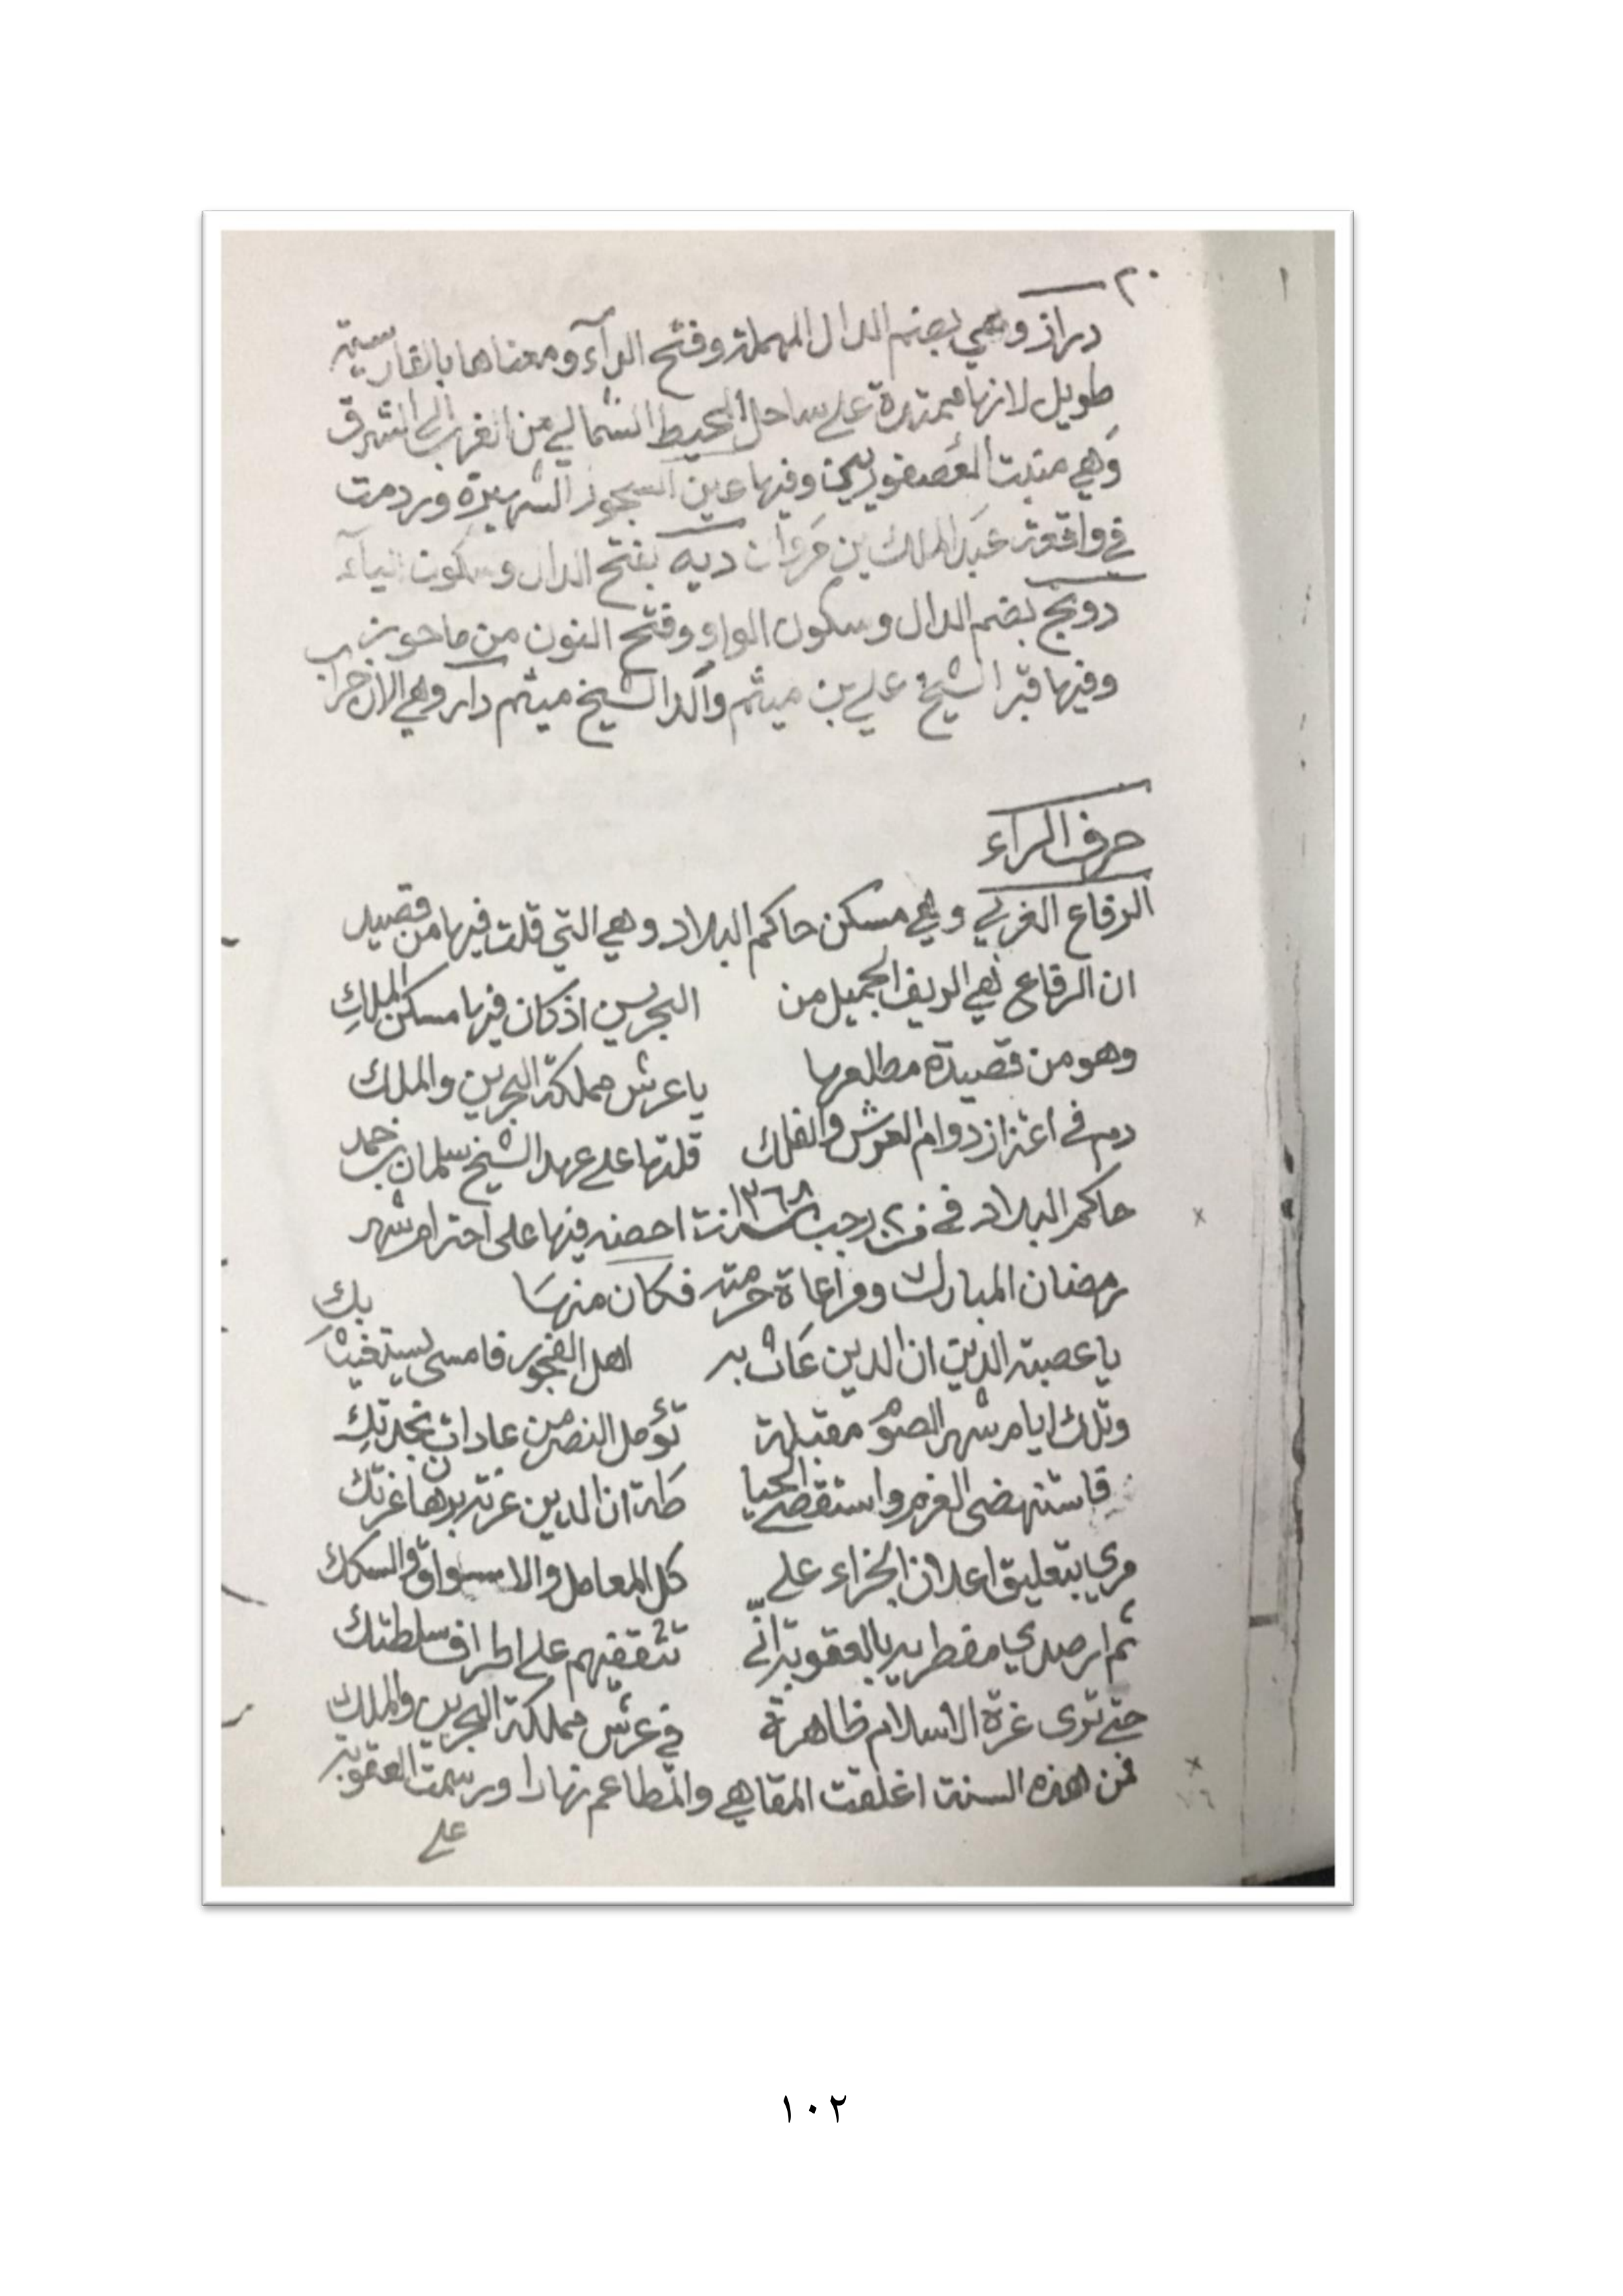 ٢٠
دراز وهي بضم الدال المهملة وفتح الرآء ومعناها بالفارسية
طويل لانها ممتدة على ساحل المحيط الشمالي من الغرب الى الشرق
وهي منبت العصفوريين وفيها عين السجور الشهيرة وردمت
في واقعة عبد الملك بن مروان ديه بفتح الدال وسكون الياء
دونج بضم الدال وسكون الواو وفتح النون من ماحوز
وفيها قبر الشيخ علي بن ميثم والد الشيخ ميثم دار وهي الان خراب
حرف الراء
الرفاع الغربي وهي مسكن حاكم البلاد وهي التي قلت فيها من قصيد
ان الرفاع لهي الريف الجميل من البحرين اذ كان فيها مسكن الملك
وهو من قصيدة مطلعها يا عرش مملكة البحرين والملك
دم في اعتزاز دوام العرش والفلك قلتها على عهد الشيخ سلمان بن حمد
حاكم البلاد في رجب سنة ١٣٦٨ احضه فيها على احترام شهر
رمضان المبارك ومراعاة حرمته فكان منها
يا عصبة الدين ان الدين عاث به اهل الفجور فامسى يستغيث بك
وتلك ايام شهر الصوم مقبلة تؤمل النصر من عادات نجدتك
فاستنهضي العزم واستقصي الحياطة ان الدين عزته بدها عزتك
مري بتعليق اعلان الجزاء على كل المعامل والاسواق والسكك
ثم ارصدي مفطريه بالعقوبة اني تثقفيهم على اطراف سلطتك
حتى ترى عزة الاسلام ظاهرة في عرش مملكة البحرين والملك
فمن هذه السنة اغلقت المقاهي والمطاعم نهارا ورسمت العقوبة
على
١٠٢